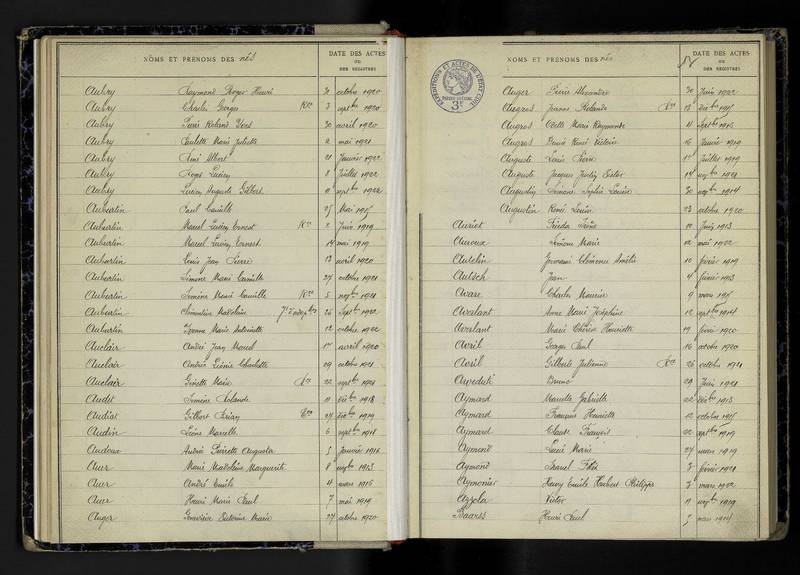 NOMS ET PRÉNOMS DES nés
DATE DES ACTES
OU
DES REGISTRES
Aubry Raymond Roger Henri 31 octobre 1920
Aubry Charles Georges Rec 3 septbre 1920
Aubry Roland 30 avril 1920
Aubry Paulette Marie Juliette 2 mai 1921
Aubry René Albert 21 Janvier 1922
Aubry Lucien 8 Juillet 1922
Aubry Lucien Auguste Gilbert 11 septbre 1922
Aubertin Paul Camille 25 Mai
Aubertin Marcel Lucien Ernest Rec 2 Juin 1919
Aubertin Marcel Lucien Ernest 14 mai 1919
Aubertin Louis Jean Pierre 13 avril 1920
Aubertin Simone Marie Camille 27 octobre 1921
Aubertin Simone Marie Camille Rec 5 novbre 1921
Aubertin Madeleine 26 Septbre 1922
Aubertin Yvonne Marie Antoinette 12 octobre 1922
Auclair André Jean Marcel avril 1920
Auclair Andrée Léonie Charlotte 29 octobre 1921
Auclair Ginette Marie Rec 22 septbre 1921
Audet Simone Rolande 11 Décbre 1918
Audiat Gilbert 27 Décbre 1919
Audin Léone Marcelle 6 septbre 1918
Audoux Andrée Pierrette Augusta 5 Janvier 1916
Auer Marie Madeleine Marguerite 8 novbre 1913
Auer André Emile 4 mars 1916
Auer Henri Marie Paul 7 mai 1919
Auger Geneviève Victorine Marie 27 octobre 1920
NOMS ET PRÉNOMS DES nés
DATE DES ACTES
OU
DES REGISTRES
EXPÉDITIONS ET ACTES DE L'ÉTAT CIVIL
3F
Auger Pierre Alexandre 30 Juin 1922
Augros Jeanne Rolande Rec 13 Décbre
Augros Odette Marie Raymonde 4 Septbre 1916
Augros Denis René Victoire 16 Janvier 1919
Auguste Louis Pierre Juillet 1919
Auguste Jacques Justin Victor 14 novbre 1921
Augustin Simone Sophie Louise 30 novbre 1914
Augustin René Louis 23 octobre 1920
Auriot Frieda Irène 10 Juin 1913
Auroux Simone Marie 12 mai 1922
Autelin Germaine Clémence Amélie 10 février 1919
Autsch Jean 4 février 1913
Avare Charles Maurice 9 mars
Avalant Anne Marie Joséphine 12 septbre 1914
Avalant Marie Thérèse Henriette 19 février 1920
Avril Georges Paul 16 octobre 1920
Avril Gilberte Julienne Rec 26 octobre 1921
Aveduti Bruno 29 Juin 1921
Aymard Marcelle Gabrielle 22 Décbre 1913
Aymard François Henriette 12 octobre
Aymard Claude François 22 septbre 1919
Aymond Louis Marie 27 mars 1919
Aymond Marcel Félix 3 février 1921
Aymonier Henry Emile Hubert Philippe 3 mars 1922
Azzola Victor 11 novbre 1919
Baares Henri Paul 5 mars 1914